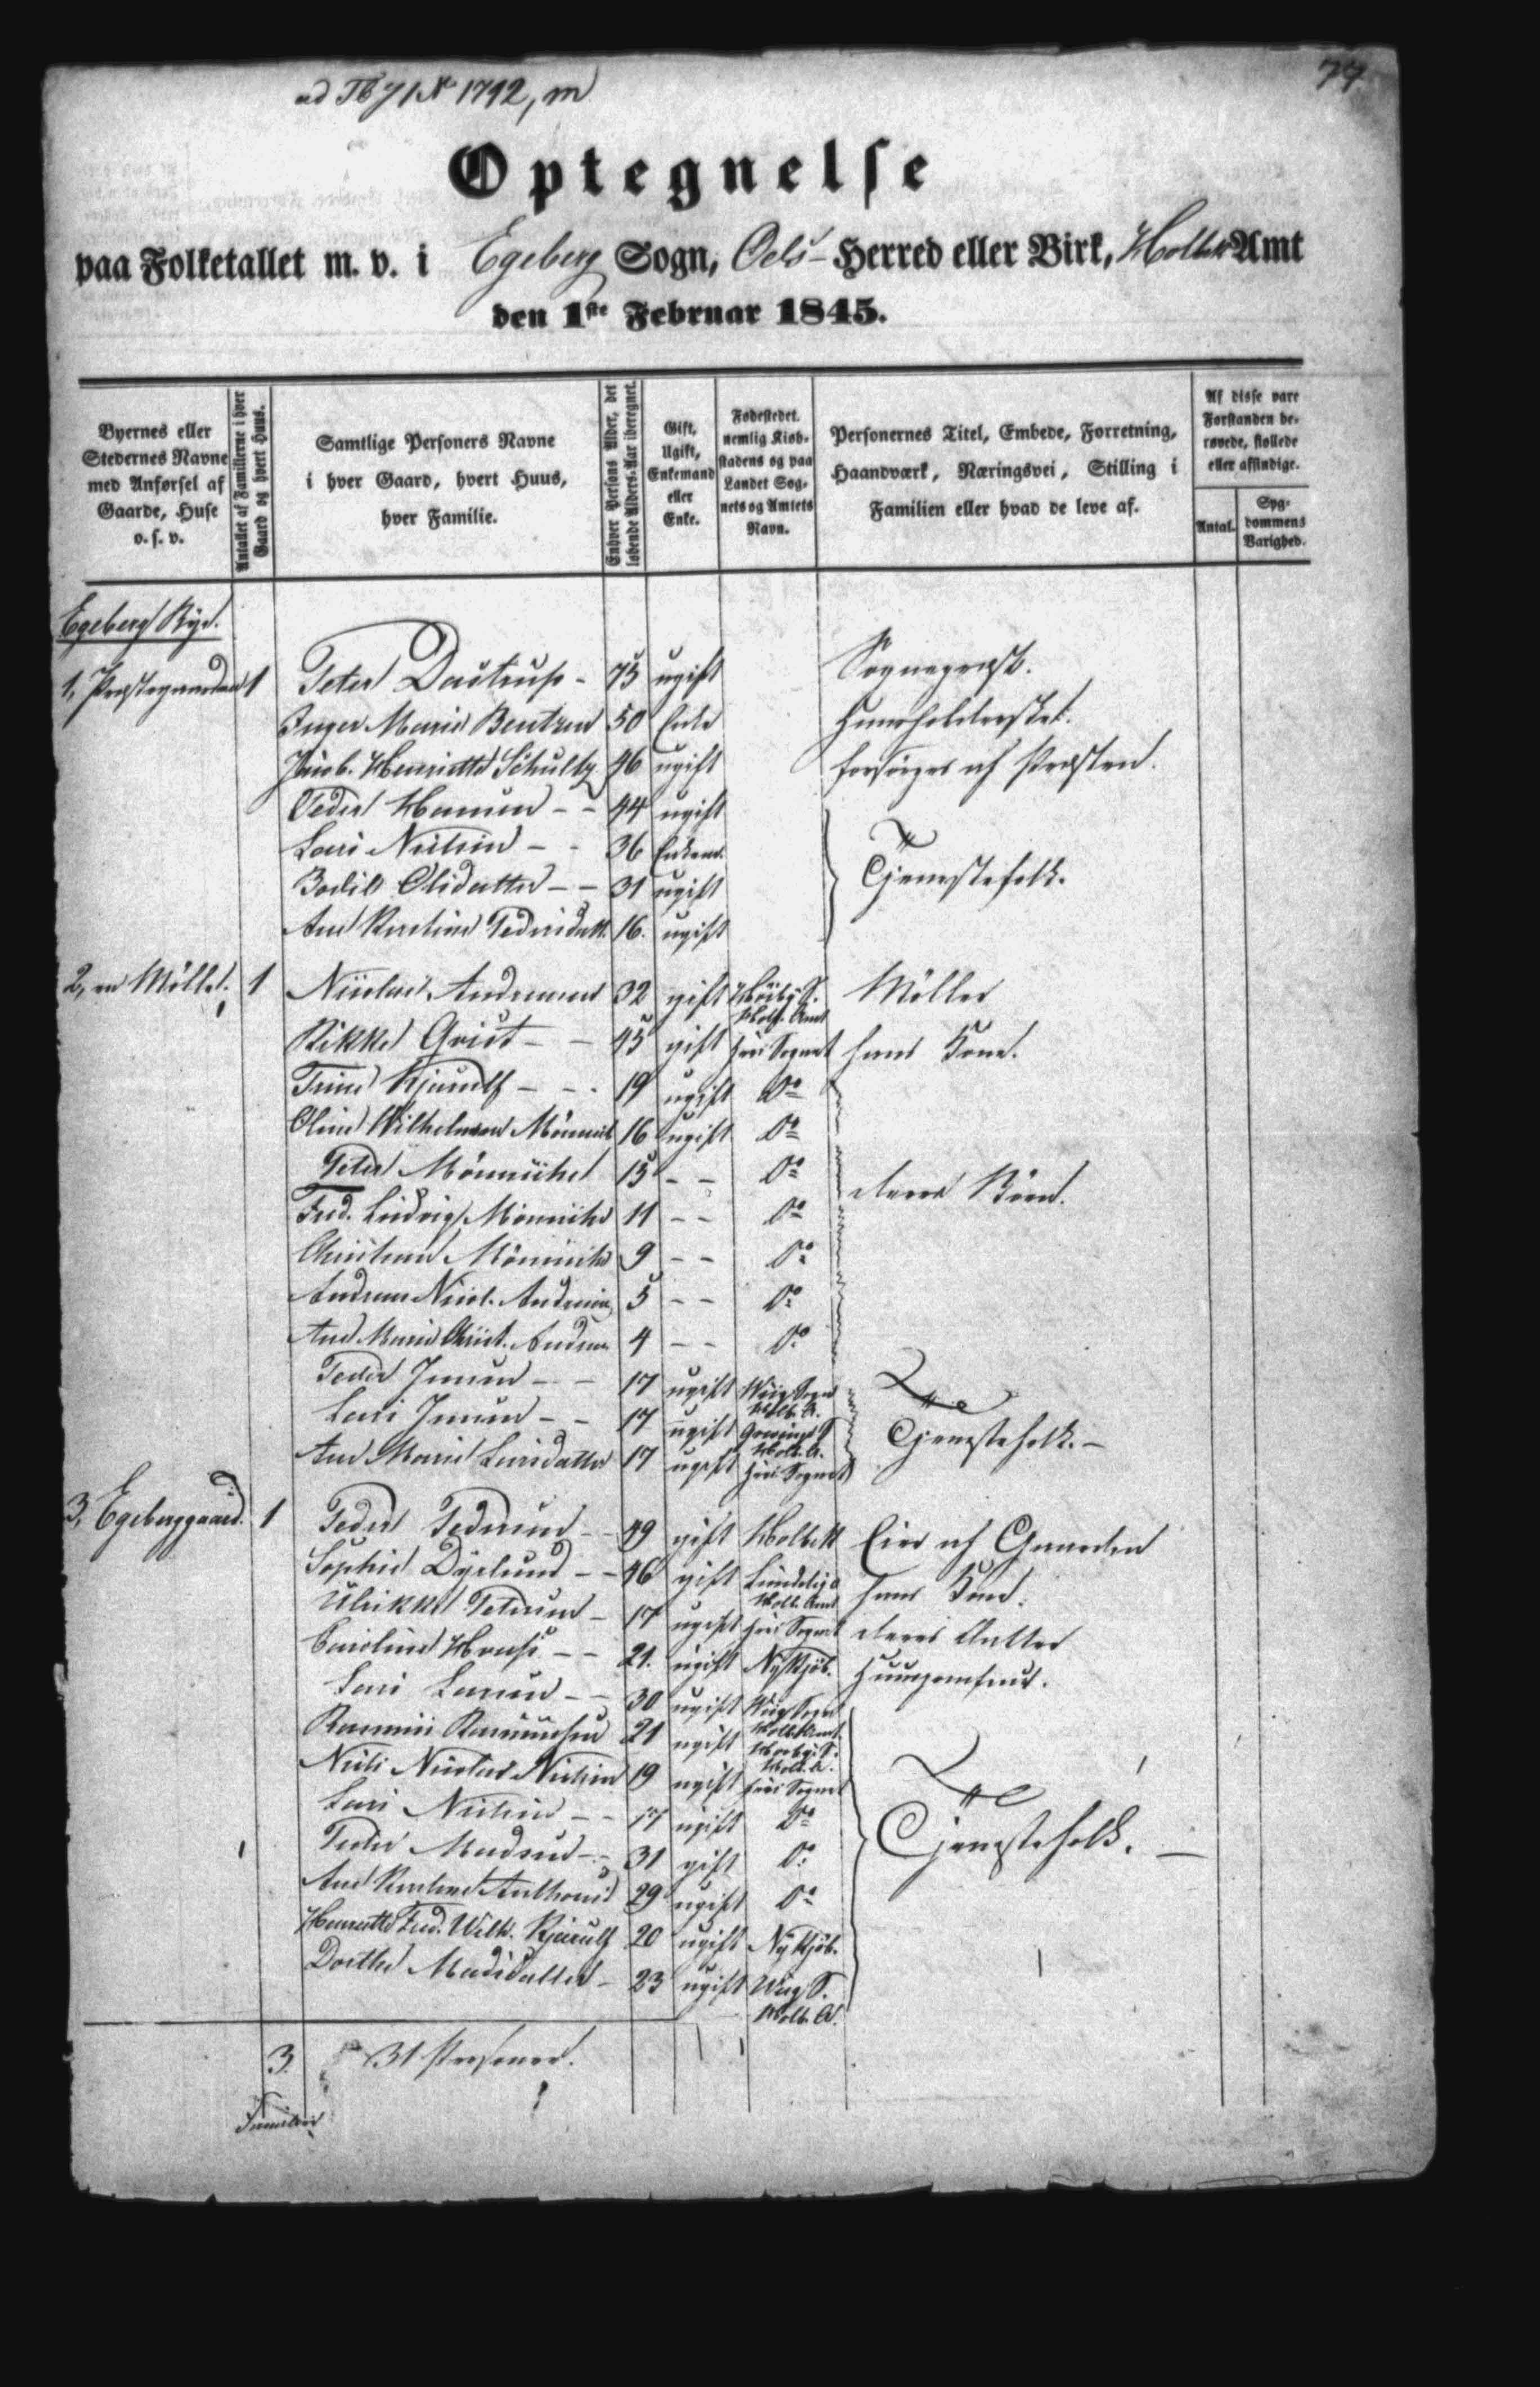 77
ad Tb 71 № 1792, m
Optegnelse
paa Folketallet m. v. i Egeberg Sogn, Ods Herred eller Birk, Holbek Amt
den 1ste Februar 1845.
Byernes eller Stedernes Navne med Anførsel af Gaarde, Huse o. s. v.
Antallet af Familierne i hver Gaard og hvert Huus.
Samtlige Personers Navne i hver Gaard, hvert Huus, hver Familie.
Enhver Persons Alder, det løbende Alders-Aar iberegnet.
Gift, Ugift, Enkemand eller Enke.
Fødestedet. nemlig Kiøbstadens og paa Landet Sognets og Amtets Navn.
Personernes Titel, Embede, Forretning, Haandværk, Næringsvei, Stilling i Familien eller hvad de leve af.
Af disse vare Forstanden berøvede, støllede eller afsindige.
Antal.
Sygdommens Varighed.
Egeberg Bye.
1, Præstegaarden 1 Peter Dastrup - 75 ugift Sognepræst.
Inger Marie Bentzen 50 Enke Huusholderske.
Jacob. Henriette Schultz 46 ugift forsørges af Præsten.
Peder Hansen - - 44 ugift
Lars Nielsen - - 36 Enkem.
Bodil Olsdatter - - 31 ugift Tjenestefolk.
Ane Kirstine Pedersdatt. 16. ugift
2, en Mølle. 1 Nicolai Andreasen 32 gift Høiby S. Holb. Amt Møller
Rikke Qvist - - 45 gift her i Sognet hans Kone.
Trine Kjerulf - - 19 ugift Do
Oline Wilhelmine Mønniche 16 ugift Do
Peter Mønniche 15 - - Do deres Børn.
Fred. Ludvig Mønniche 11 - - Do
Christian Mønniche 9 - - Do
Andreas Nicol. Andreasen 5 - - Do
Ane Marie Christ. Andreas. 4 - - Do
Peder Jensen - - 17 ugift Wiig Sogn Holb. A.
Lars Jensen - - 17 ugift Grevinge S Holb. A. Tjenestefolk. -
Ane Marie Larsdatter 17 ugift her i Sognet
3, Egeberggaard. 1 Peder Pedersen - - 49 gift Holbek Eier af Gaarden
Sophie Dyrlund - - 46 gift Holb. Amt hans Kone.
Ulrikke Petersen - 17 ugift her i Sognet deres Datter
Caroline - - 21. ugift Nykjøb. Huusjomfrue.
Lars Larsen - - 30 ugift Wiig Sogn Holb. Amt.
Rasmus Rasmussen 21 ugift Holb. A.
Niels Nicolai Nielsen 19 ugift her i Sognet
Lars Nielsen - - 17 ugift Do
Peder Madsen - - 31 gift Do Tjenestefolk. -
Ane Kirstine 29 ugift Do
Henriette Fred. Wilh. Kjerulf 20 ugift Nykjøb.
Dorthe Madsdatter - 23 ugift Wiig S. Holb. A.
3. 31 Personer.
Familier